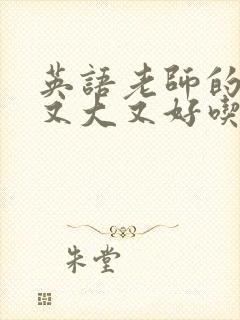 英語老師的
又大又好喫
朱堂